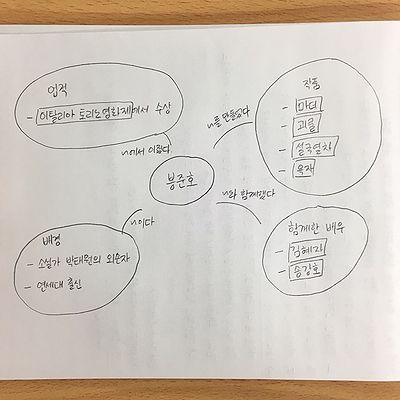 업적
- 이탈리아 토리노영화제에서 수상
~에서 이뤘다
작품
- 마더
- 괴물
- 설국열차
- 옥자
~를 만들었다
봉준호
~와 함께했다
~이다
배경
- 소설가 박태원의 외손자
- 연세대 출신
함께한 배우
- 김혜자
- 송강호